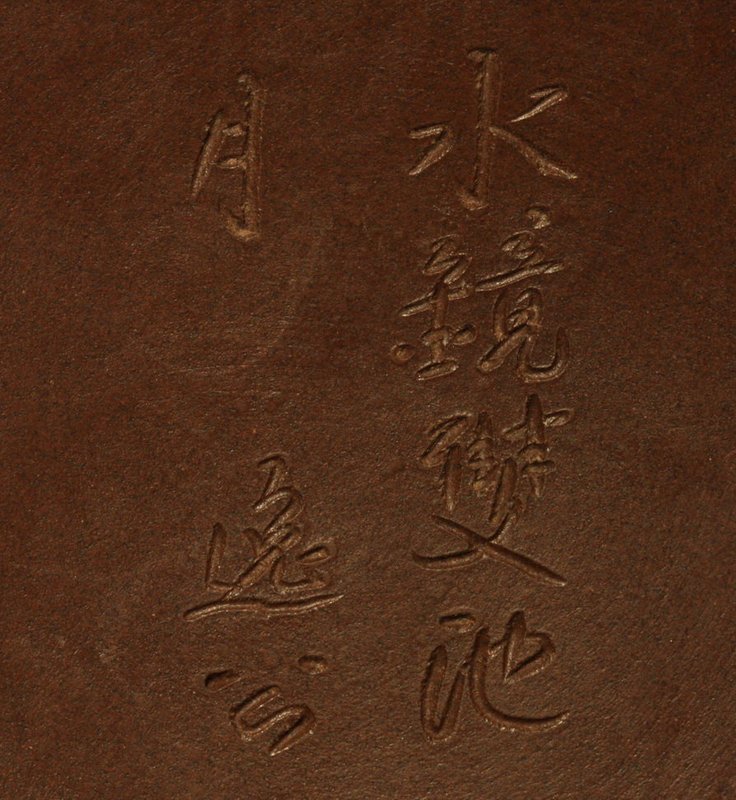 水鏡雙池
月
逸公